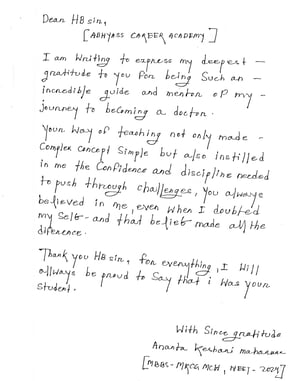 Dear HB sir,
[ABHYASS CAREER ACADEMY]
I am writing to express my deepest -
gratitude to you for being such an -
incredible guide and mentor of my -
journey to becoming a doctor.
Your way of teaching not only made -
Complex concept Simple but also instilled
in me the Confidence and discipline needed
to push through challenges, You always
believed in me, even when I doubted
my Self - and that belief made all the
diference.
Thank you HB sir, for everything, I will
allways be proud to Say that i was your
Student.
With Since gratitude
Ananta Keshari
[MBBS - MKCG MCH, NEET - 2024]